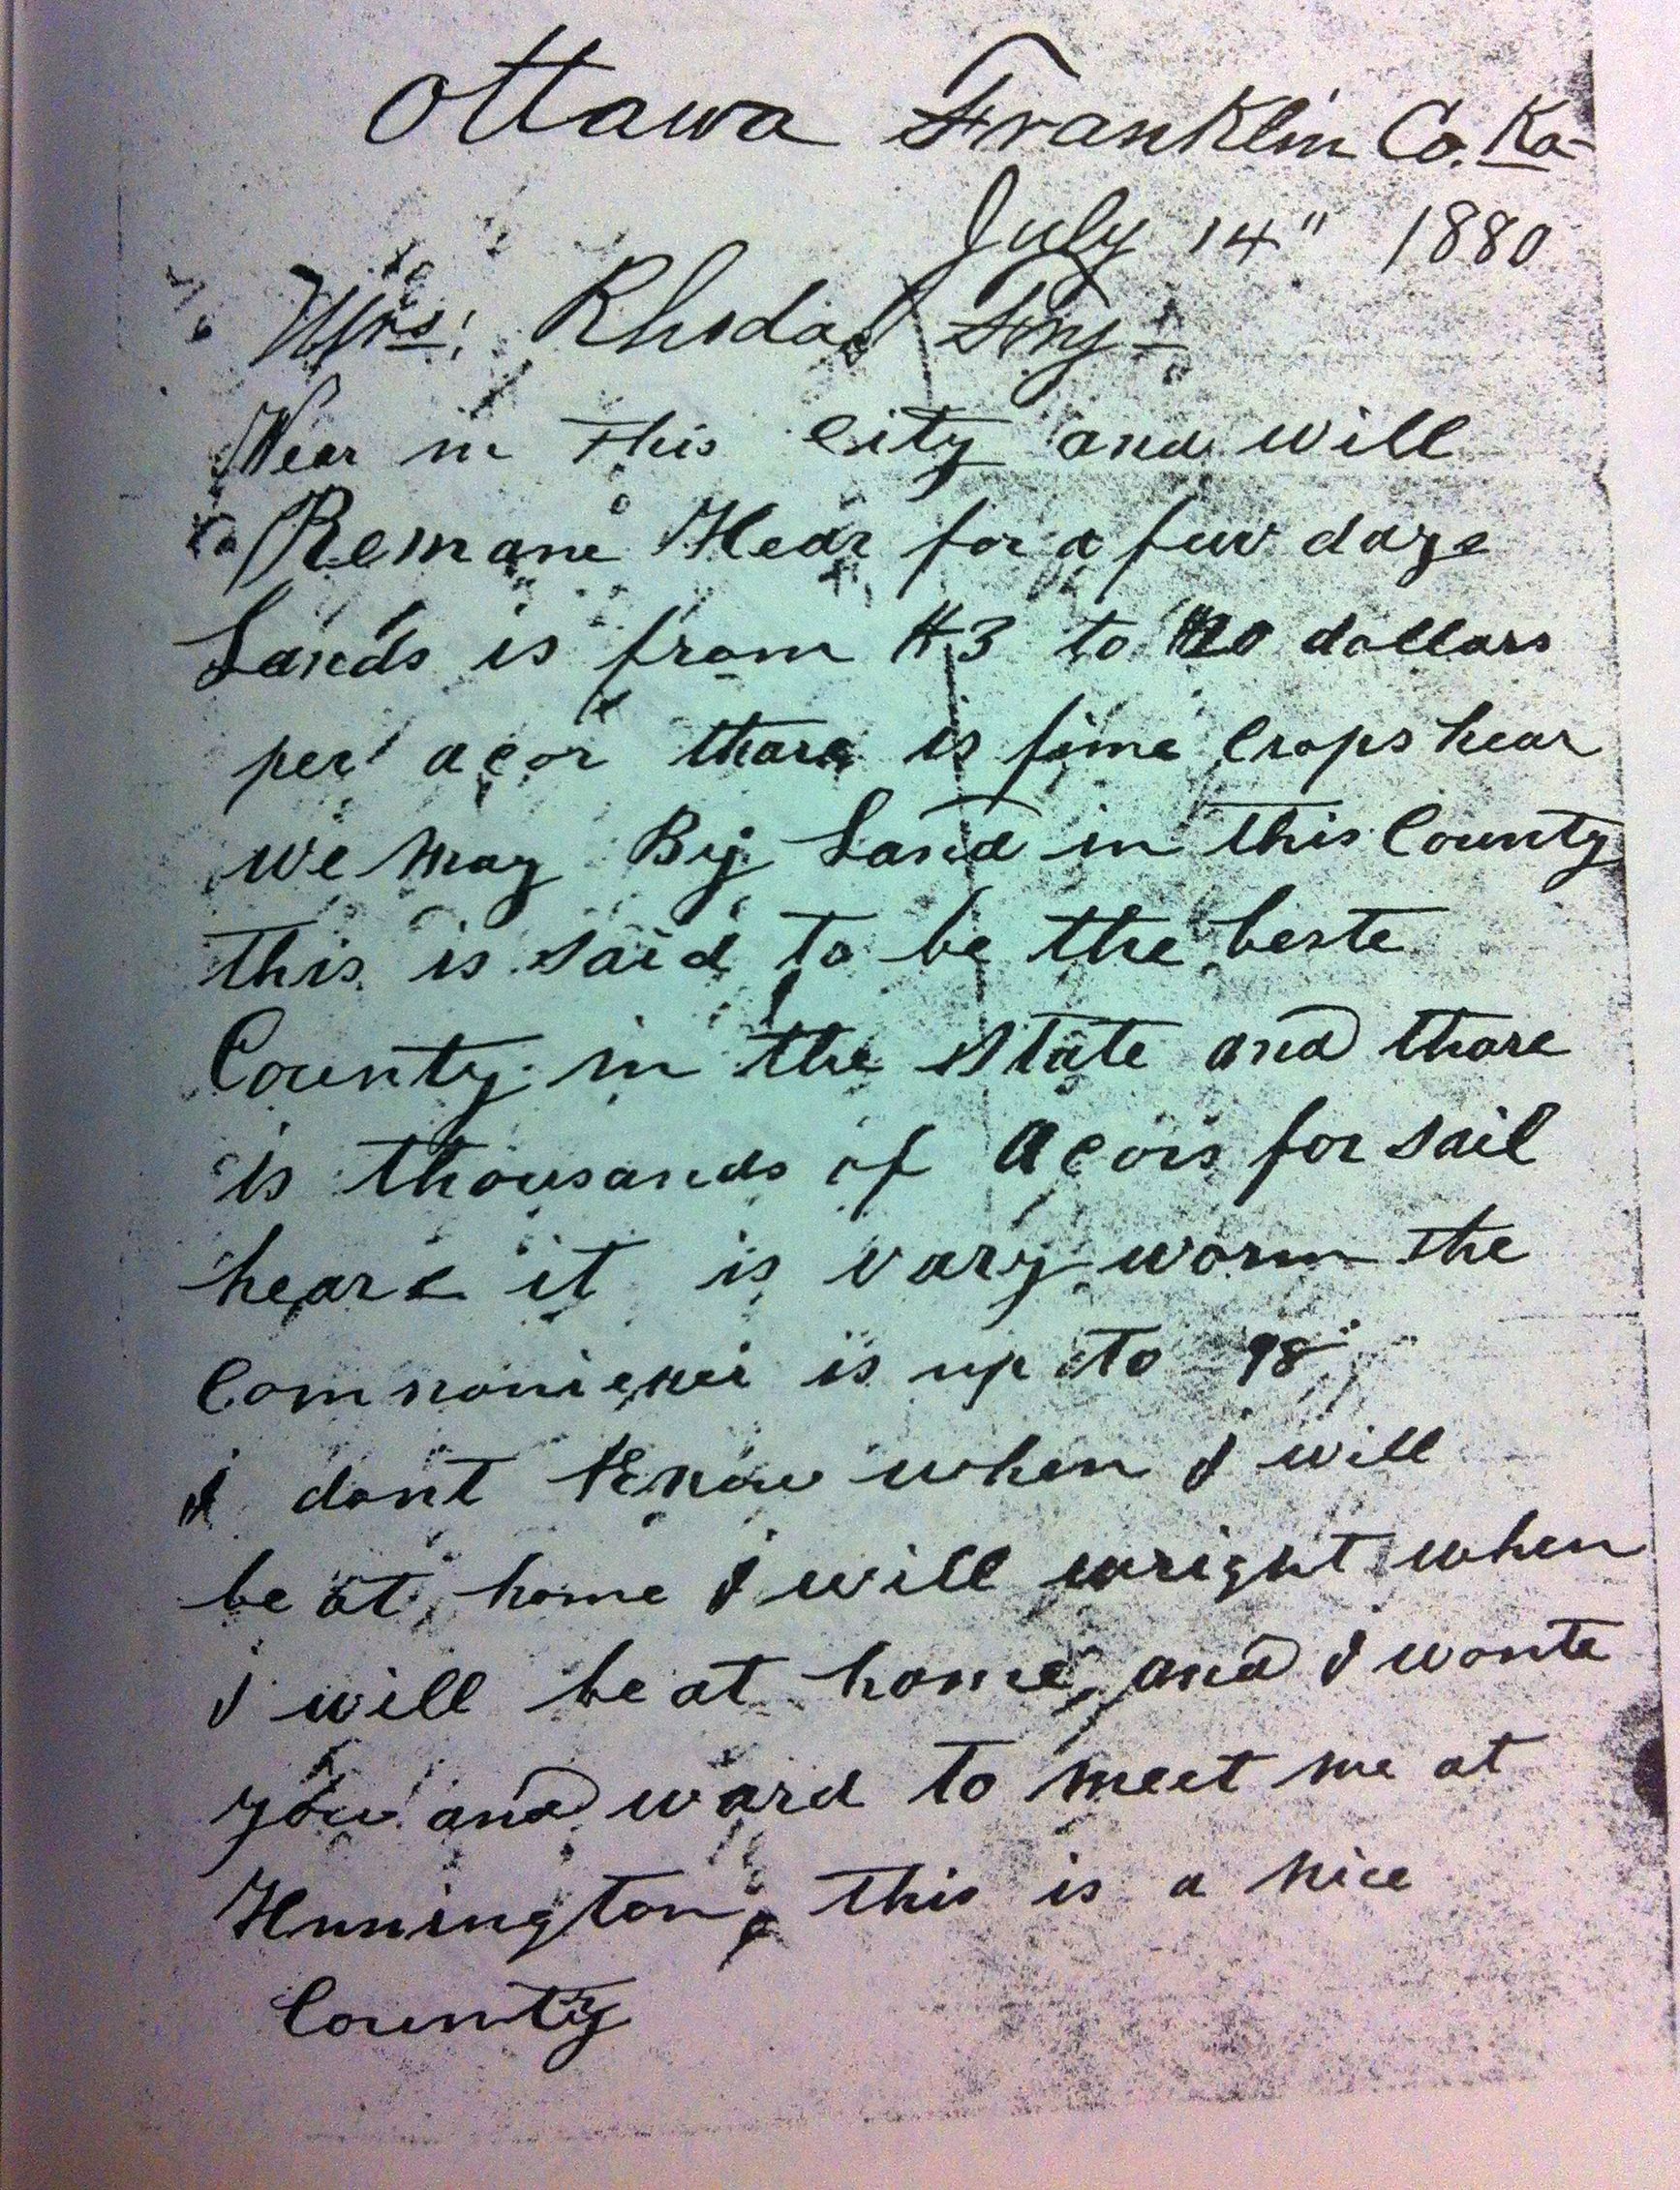 Ottawa Franklin Co. Ka-
July 14" 1880
Mrs. Rhoda Fry-
Wear in this City and will
Remane Hear for a few days
Lands is from $3 to 20 dollars
per acor thare is fine Crops hear
we may By Land in this County
this is said to be the beste
County in the State and thare
is thousands of acors for sail
heare it is vary worm the
is up to 98
I dont Know when I will
be at home I will wright when
I will be at home and I wonte
you and ward to meet me at
Hunington this is a nice
County